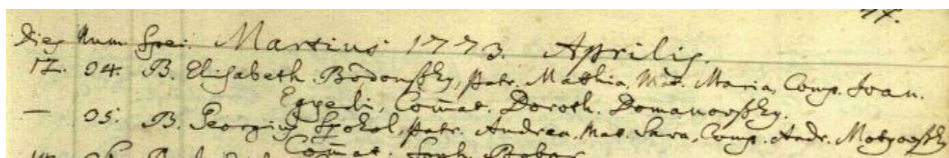 Dies Num. Spei. Martius 1773. Aprilis.
17. 04. B. Elisabeth. Bodonszky, Patr. Mathia, Mat. Maria, Comp. Joan.
Egyedi, Com̄at. Doroth. Domanovszky.
— 05. B. Georgius Spokol, Patr. Andrea, Mat. Sara, Comp. Andr. Motyovszky,
Com̄at.